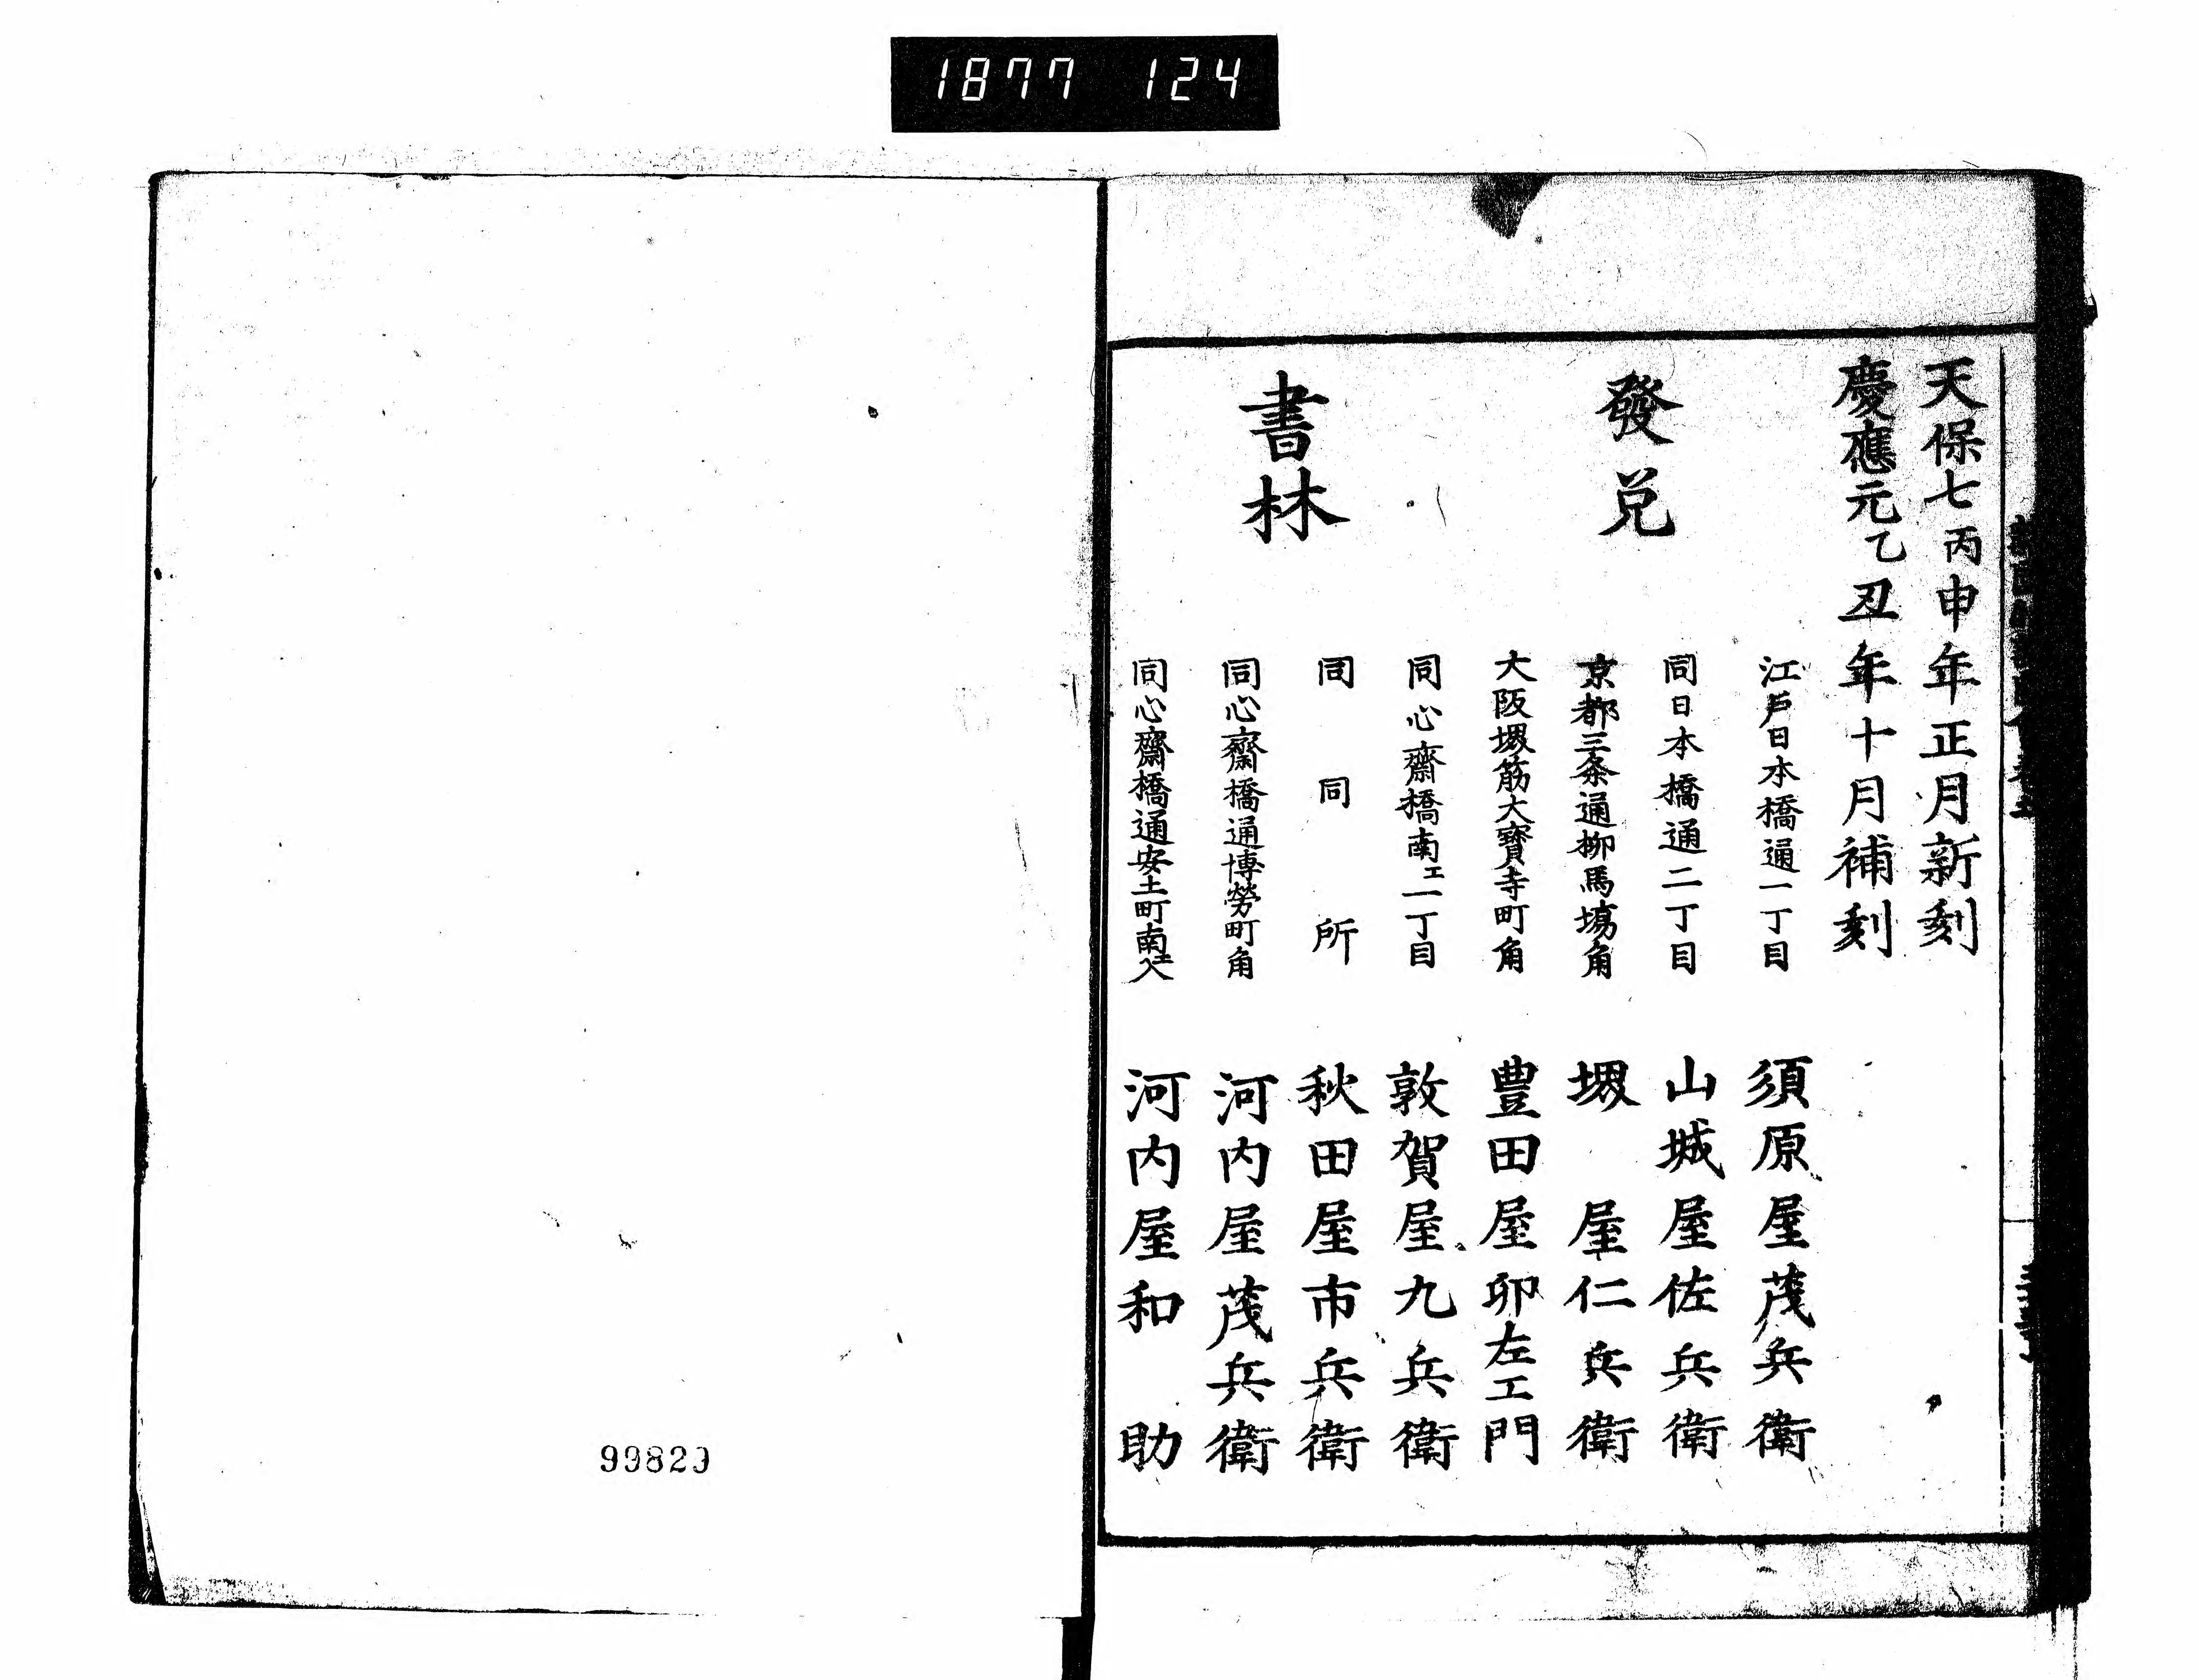 1877 124
天保七丙申年正月新刻
慶應元乙丑年十月補刻
發兌
江戸日本橋通一丁目 須原屋茂兵衛
同日本橋通二丁目 山城屋佐兵衛
京都三条通柳馬塲角 堺屋仁兵衛
大阪堺筋大寳寺町角 豊田屋卯左エ門
書林
同心齋橋南エ一丁目 敦賀屋九兵衛
同同所 秋田屋市兵衛
同心齋橋通博勞町角 河内屋茂兵衛
同心齋橋通安土町南エ入 河内屋和助
99820